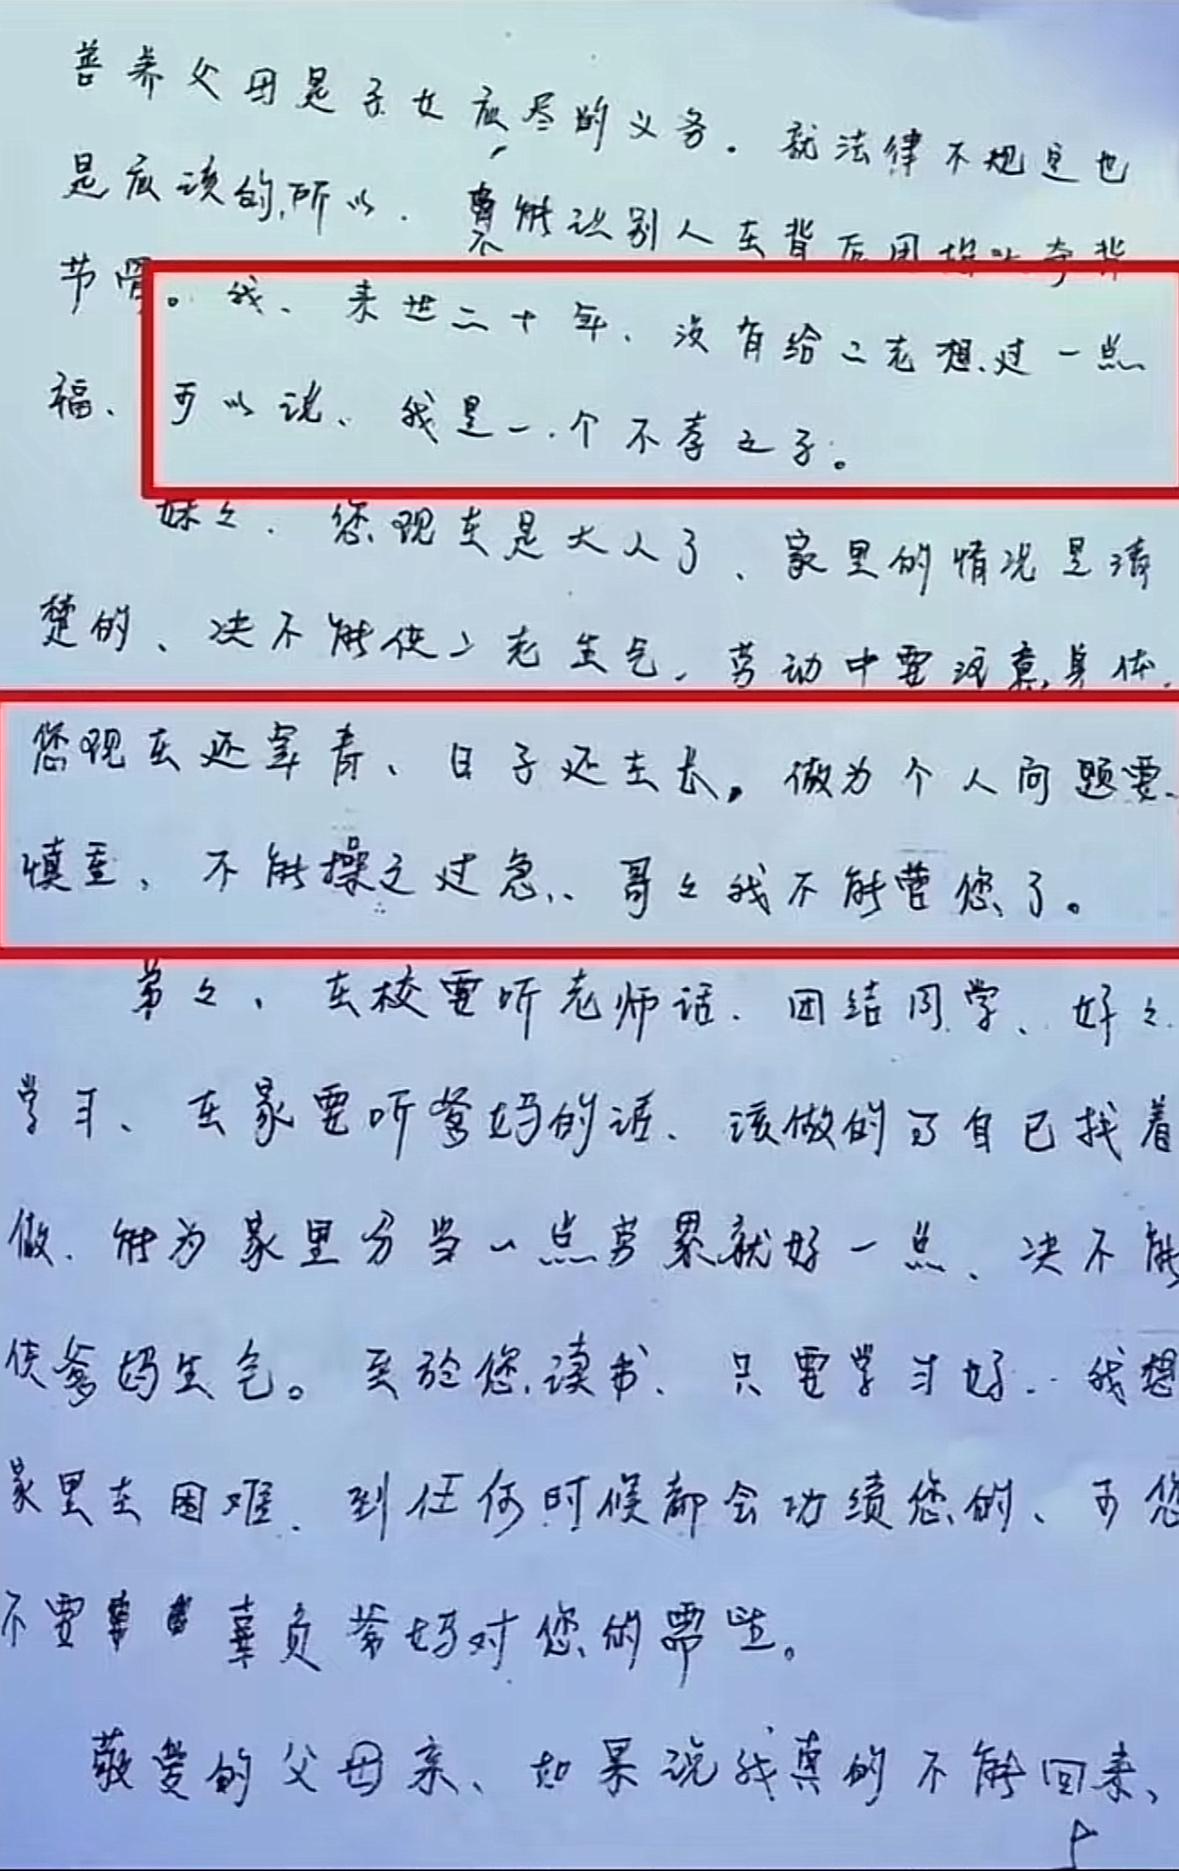 善养父母是子女应尽的义务。就法律不规定也
是应该的,所以.要不能识别人在背后
节骨。我、来世二十年、没有给二老想过一点
福、可以说、我是一个不孝之子。
妹々.您现在是大人了、家里的情况是清
楚的、决不能使二老生气.劳动中要注意身体.
您现在还年青、日子还在长。做为个人问题要
慎重,不能操之过急..哥々我不能管您了。
弟々、在校要听老师话.团结同学、好々
学习、在家要听爹妈的话、该做的 自己找着
做.能为家里分当一点劳累就好一点、决不能
使爹妈生气。至於您读书、只要学习好..我想
家里在困难.到任何时候都会功绩您的、可您
不要 辜负爹妈对您的 。
敬爱的父母亲、如果说我真的不能回来、